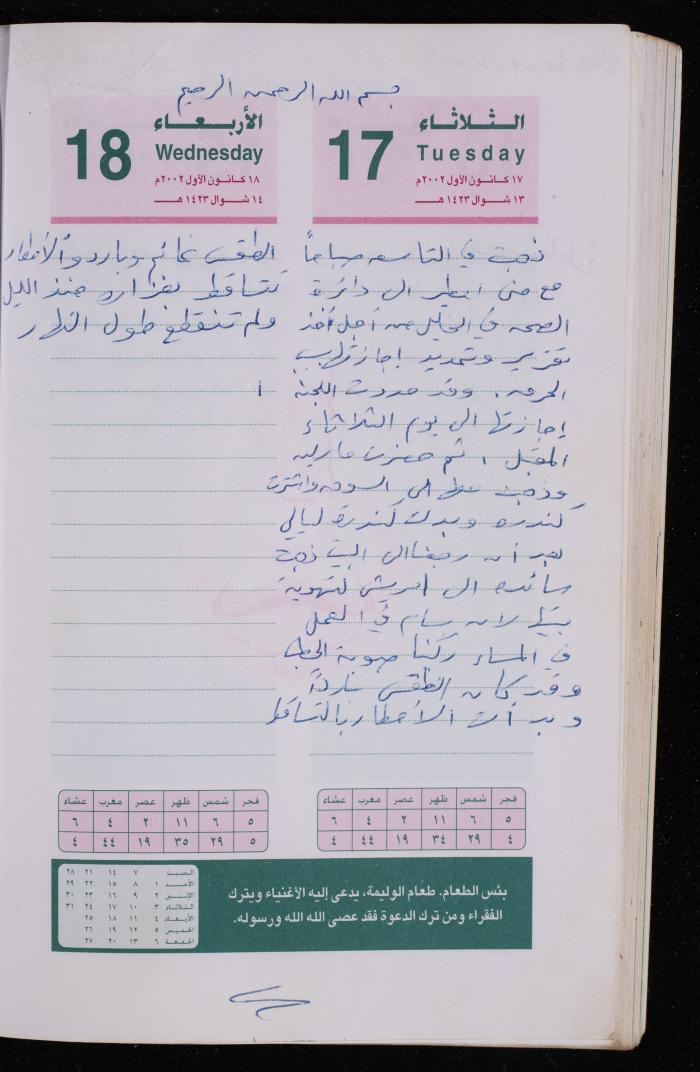 بسم الله الرحمن الرحيم
الثلاثاء
17
Tuesday
١٧ كانون الأول ٢٠٠٢م
١٣ شوال ١٤٢٣ هـ
ذهبت في التاسعه صباحاً
مع منى الى دائرة
الصحه في الخليل من أجل أخذ
تقرير وتمديد إجازتها
وقد مددت اللجنة
إجازتها الى يوم الثلاثاء
المقبل ، ثم حضرت ماريه
وذهبت الى السوق واشترت
كندره وبدلت كندرة ليالي
بعد أن رجعنا الى البيت ذهبت
الى لتهوية
بيتها لأن في العمل
في المساء ركبنا صوبة الحطب
وقد كان الطقس بارداً
وبدأت الأمطار بالتساقط
الأربعاء
18
Wednesday
١٨ كانون الأول ٢٠٠٢م
١٤ شوال ١٤٢٣ هـ
الطقس غائم وبارد والأمطار
تتساقط بغزاره منذ الليل
ولم تنقطع طول النهار
فجر شمس ظهر عصر مغرب عشاء
٥ ٦ ١١ ٢ ٤ ٦
٤ ٢٩ ٣٤ ١٩ ٤٤ ٤
فجر شمس ظهر عصر مغرب عشاء
٥ ٦ ١١ ٢ ٤ ٦
٥ ٢٩ ٣٥ ١٩ ٤٤ ٤
بئس الطعام. طعام الوليمة، يدعى إليه الأغنياء ويترك
الفقراء ومن ترك الدعوة فقد عصى الله الله ورسوله.
السبت ٧ ١٤ ٢١ ٢٨
الأحد ١ ٨ ١٥ ٢٢ ٢٩
الإثنين ٢ ٩ ١٦ ٢٣ ٣٠
الثلاثاء ٣ ١٠ ١٧ ٢٤ ٣١
الأربعاء ٤ ١١ ١٨ ٢٥
الخميس ٥ ١٢ ١٩ ٢٦
الجمعة ٦ ١٣ ٢٠ ٢٧